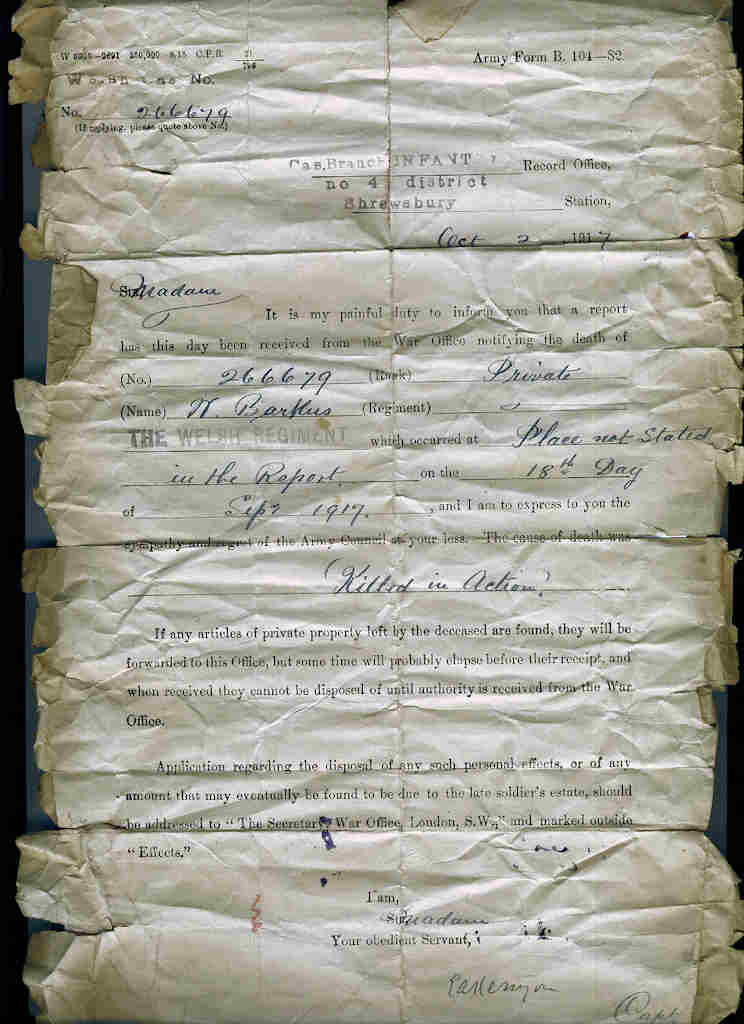 Army Form B. 104—82.
No.
No. 266679
(If replying, please quote above No.)
Cas. Branch INFANT Record Office,
no 4 district
Shrewsbury Station,
Oct 2 1917
Sir Madam
It is my painful duty to inform you that a report
has this day been received from the War Office notifying the death of
(No.) 266679 (Rank) Private
(Name) W. Barkus (Regiment)
THE WELSH REGIMENT which occurred at Place not Stated
in the Report. on the 18th Day
of Sept 1917. , and I am to express to you the
sympathy and regret of the Army Council at your loss. The cause of death was
Killed in Action.
If any articles of private property left by the deceased are found, they will be
forwarded to this Office, but some time will probably elapse before their receipt, and
when received they cannot be disposed of until authority is received from the War
Office.
Application regarding the disposal of any such personal effects, or of any
amount that may eventually be found to be due to the late soldier's estate, should
be addressed to "The Secretary, War Office, London, S.W.," and marked outside
"Effects."
I am,
Sir Madam
Your obedient Servant,
Capt